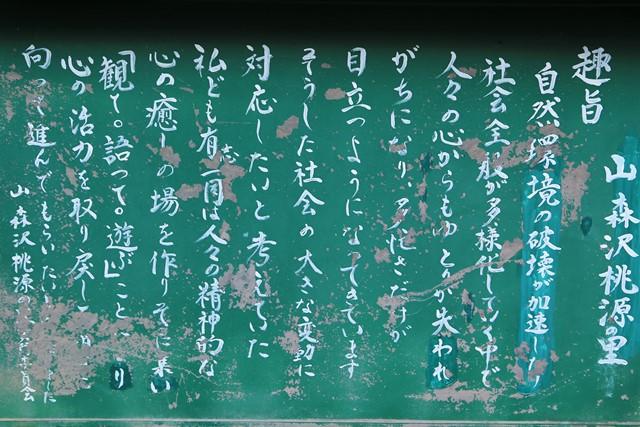 趣旨
山森沢桃源の里
自然環境の破壊が加速し
社会全般が多様化していく中で
人々の心からもゆとりが失われ
がちになり、多忙さだけが
目立つようになってきています
そうした社会の大きな変動に
対応したいと考えていた
私ども有志一同は人々の精神的な
心の癒しの場を作りそこに集い
「観て。語って。遊ぶ」こと
り
心の活力を取り戻し
向って進んでもらいたい
した
山森沢桃源の
委員会